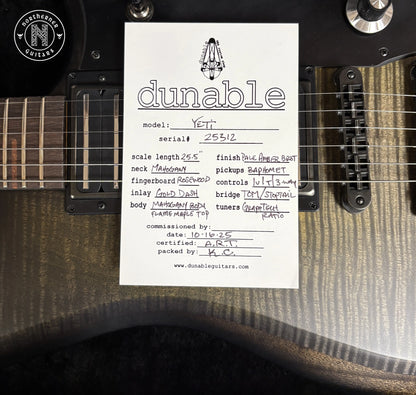 Northeance
N
Guitars
dunable
model: YETI
serial# 25312
scale length 25.5"
neck MAHOGANY
fingerboard ROSEWOOD
inlay GOLD DASH
body MAHOGANY BODY
FLAME MAPLE TOP
finish PALE AMBER BRST
pickups BAPHOMET
controls 1V/1T/3 WAY
bridge TOM/STOPTAIL
tuners GRAPHTECH
RATIO
commissioned by:
date: 10-16-25
certified: A.R.T.
packed by: K.C.
www.dunableguitars.com